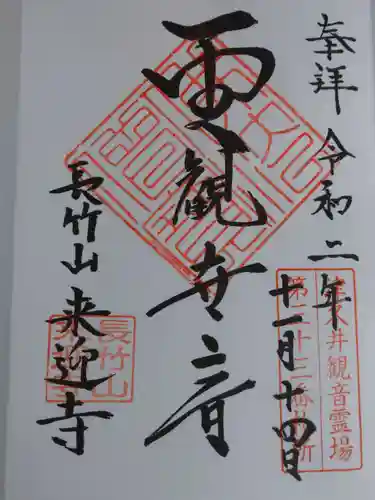 奉拝 令和二年
十一月十四日
聖観世音
長竹山
来迎寺
井観音霊場
第二十三番
長竹山